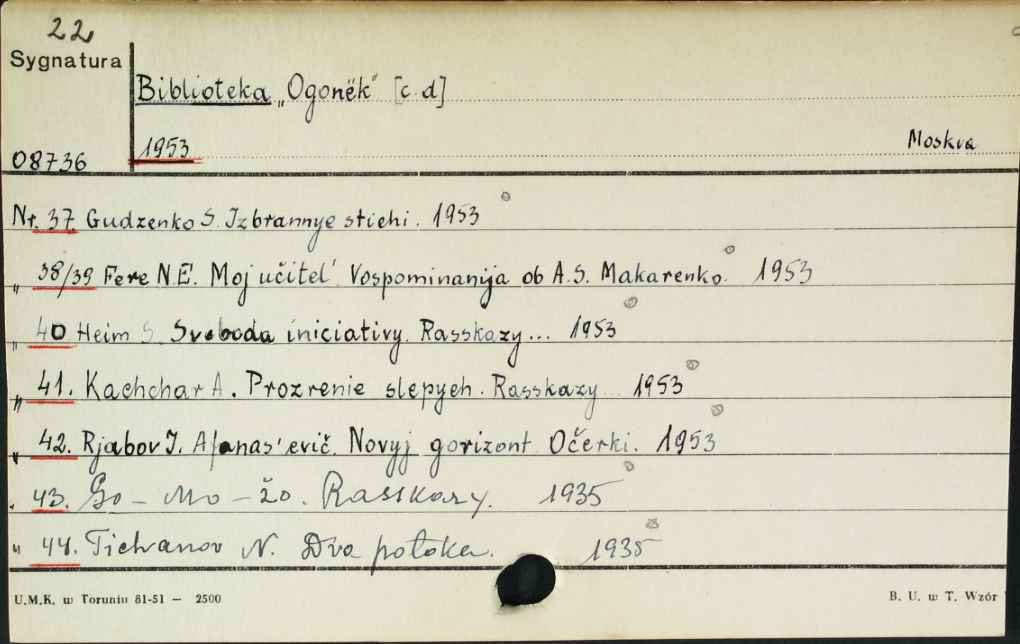 22
Sygnatura
Biblioteka „Ogonëk" [c.d]
1953 Moskva
08736
Nr. 37. Gudzenko S. Izbrannye stichi. 1953
„ 38/39 Fere N.E. Moj učitel'. Vospominanija ob A.S. Makarenko. 1953
„ 40 Heim S. Svoboda iniciativy. Rasskazy... 1953
„ 41. Kachchar A. Prozrenie slepych. Rasskazy... 1953
„ 42. Rjabov I. Afanas'evič. Novyj gorizont. Očerki. 1953
„ 43. Go-Mo-žo. Rasskazy. 1935
„ 44. Tichanov N. Dva potoka. 1935
U.M.K. w Toruniu 81-51 — 2500
B. U. w T. Wzór